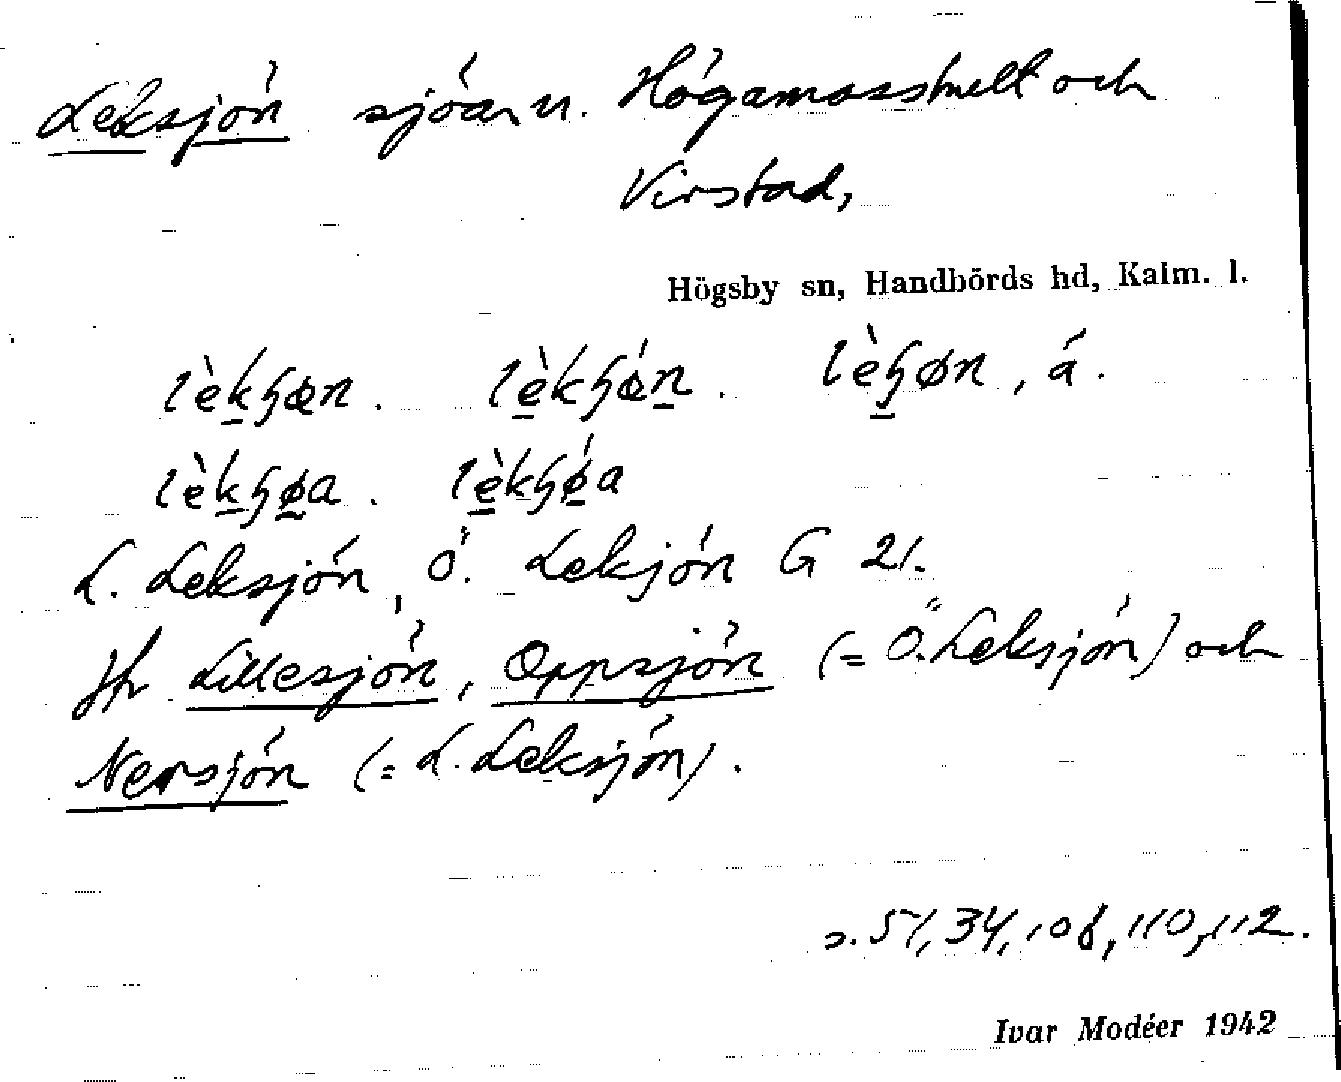 Leksjön sjöar u. Högamosshult och
Virstad,
Högsby sn, Handbörds hd, Kalm. l.
L. Leksjön, Ö. Leksjön G 21.
Jfr Lillesjön, Oppsjön (= Ö. Leksjön) och
Nersjön (= L. Leksjön).
s. 51, 34, 108, 110, 112.
Ivar Modéer 1942